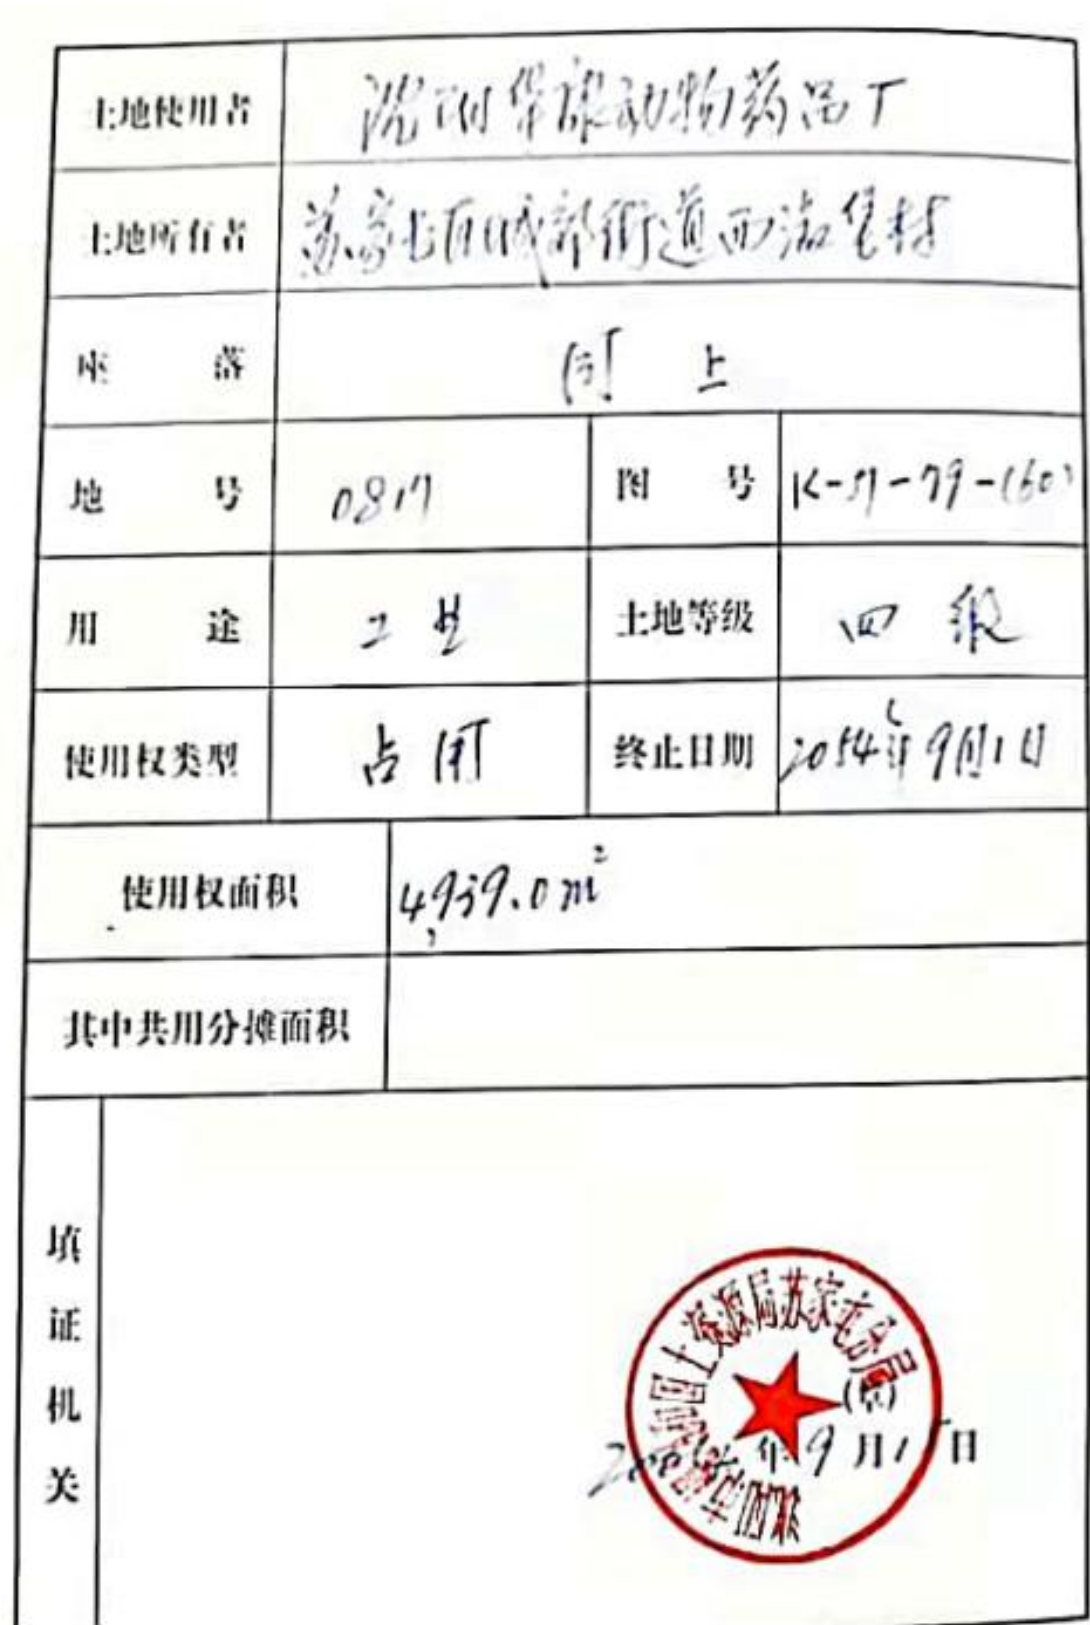 土地使用者 沈阳保康动物药品厂
土地所有者 苏家屯区城郊街道西淑堡村
座 落 同上
地 号 0817 图 号 K-51-79-(60)
用 途 工业 土地等级 四级
使用权类型 占用 终止日期 2054年9月1日
使用权面积 4,939.0m²
其中共用分摊面积
填证机关
国土资源局苏家屯分局
(章)
年9月1日